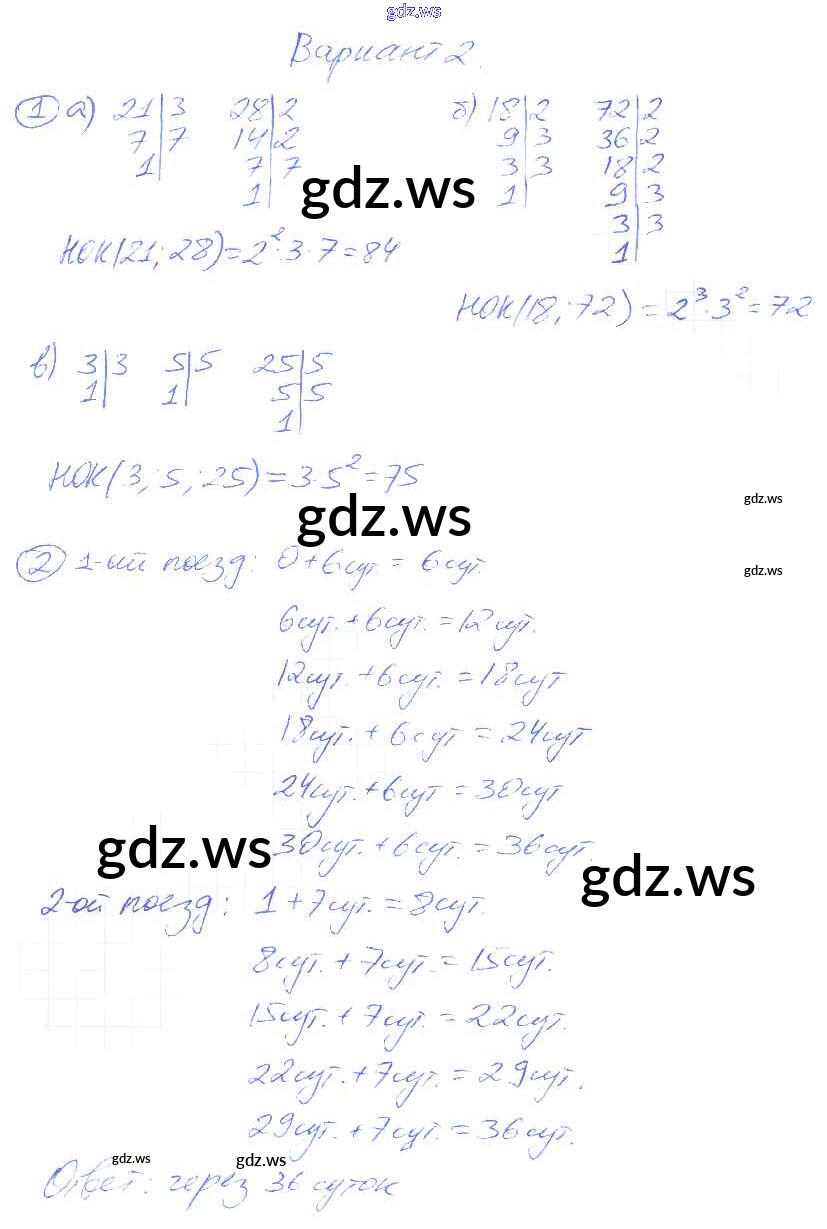 gdz.ws
Вариант 2.
1 а) 21 3 28 2 б) 18 2 72 2
7 7 14 2 9 3 36 2
1 7 7 3 3 18 2
1 1 9 3
gdz.ws
3 3
1
НОК(21; 28) = 2² · 3 · 7 = 84
НОК(18; 72) = 2³ · 3² = 72
в) 3 3 5 5 25 5
1 1 5 5
1
НОК(3; 5; 25) = 3 · 5² = 75
gdz.ws
gdz.ws
2 1-ый поезд: 0 + 6 сут. = 6 сут.
gdz.ws
6 сут. + 6 сут. = 12 сут.
12 сут. + 6 сут. = 18 сут
18 сут. + 6 сут = 24 сут
24 сут. + 6 сут = 30 сут
30 сут. + 6 сут. = 36 сут.
gdz.ws
gdz.ws
2-ой поезд: 1 + 7 сут. = 8 сут.
8 сут. + 7 сут. = 15 сут.
15 сут. + 7 сут. = 22 сут.
22 сут. + 7 сут. = 29 сут.
29 сут. + 7 сут. = 36 сут.
gdz.ws
gdz.ws
Ответ: через 36 суток